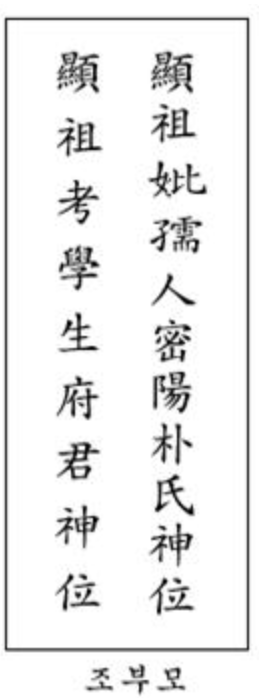 顯祖妣孺人密陽朴氏神位
顯祖考學生府君神位
조부모